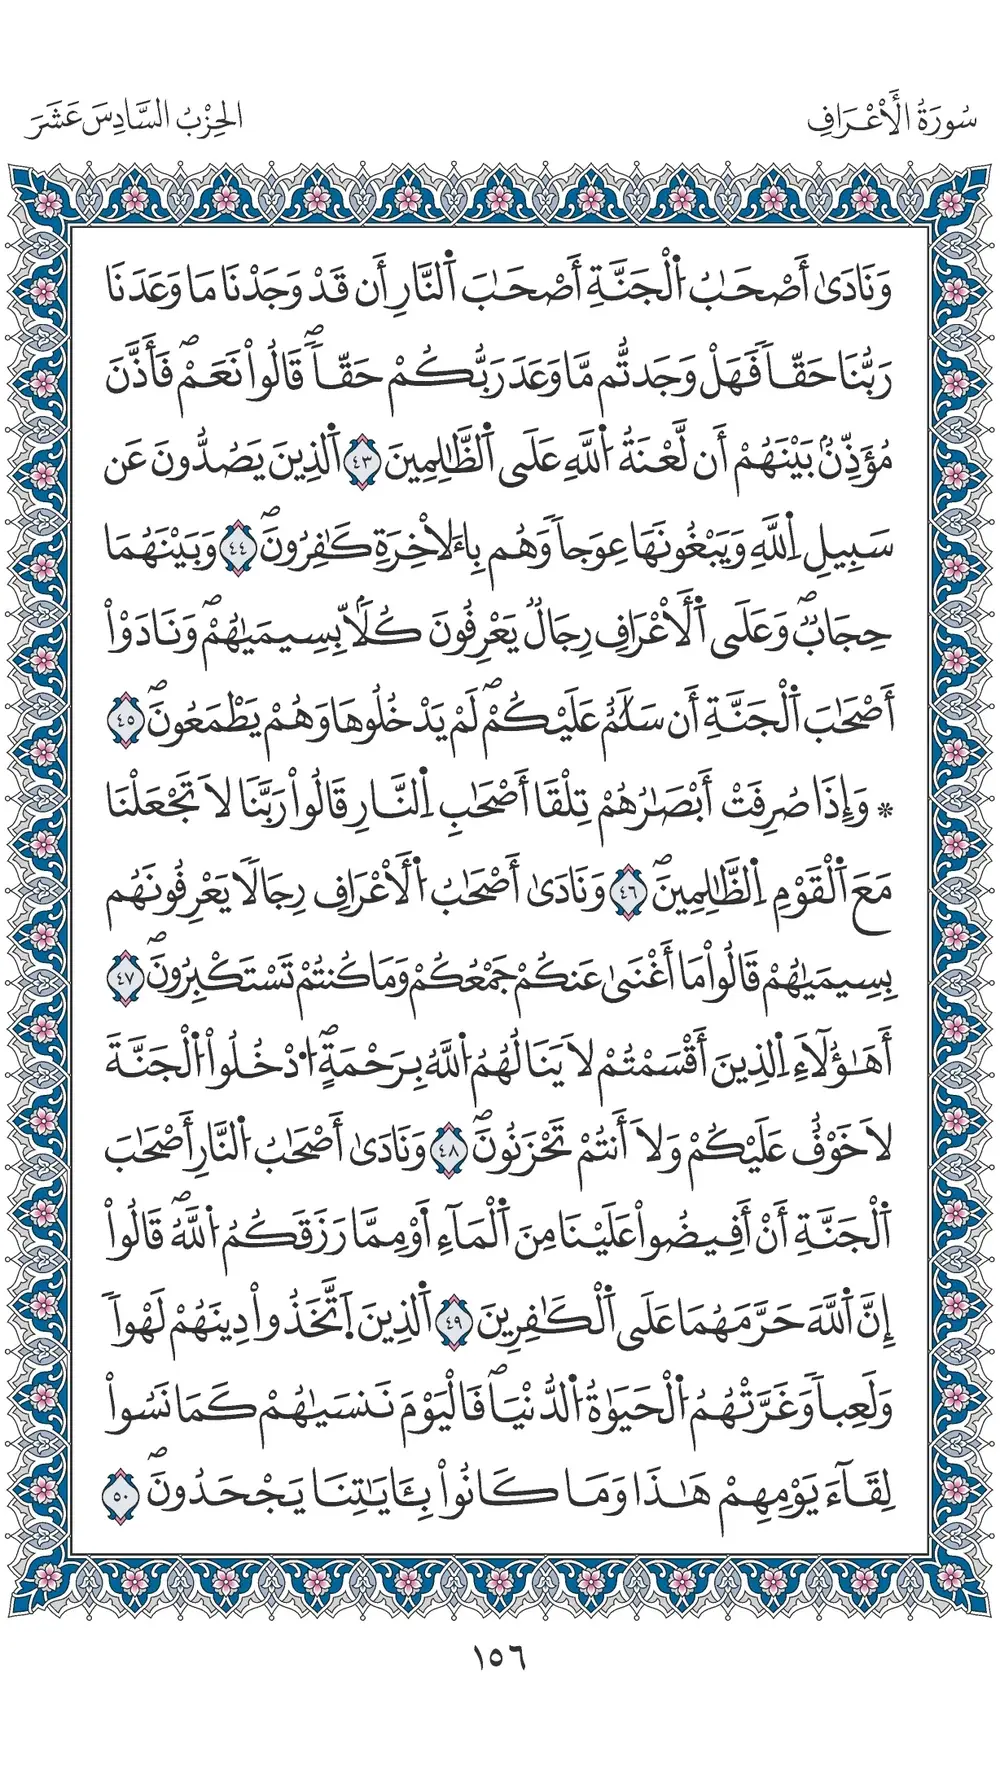 سُورَةُ الْأَعْرَافِ
الحِزْبُ السَّادِسَ عَشَرَ
وَنَادَىٰ أَصْحَٰبُ اُ۬لْجَنَّةِ أَصْحَٰبَ اَ۬لنَّارِ أَن قَدْ وَجَدْنَا مَا وَعَدَنَا
رَبُّنَا حَقّاٗ فَهَلْ وَجَدتُّم مَّا وَعَدَ رَبُّكُمْ حَقّاٗۖ قَالُواْ نَعَمْۖ فَأَذَّنَ
مُؤَذِّنُۢ بَيْنَهُمْ أَن لَّعْنَةُ اُ۬للَّهِ عَلَى اَ۬لظَّٰلِمِينَ ٤٣ اَ۬لذِينَ يَصُدُّونَ عَن
سَبِيلِ اِ۬للَّهِ وَيَبْغُونَهَا عِوَجاٗ وَهُم بِالَاخِرَةِ كَٰفِرُونَۖ ٤٤ وَبَيْنَهُمَا
حِجَابٞۖ وَعَلَى اَ۬لْأَعْرَافِ رِجَالٞ يَعْرِفُونَ كُلّاَۢ بِسِيمَىٰهُمْۖ وَنَادَوْاْ
أَصْحَٰبَ اَ۬لْجَنَّةِ أَن سَلَٰمٌ عَلَيْكُمْۖ لَمْ يَدْخُلُوهَا وَهُمْ يَطْمَعُونَۖ ٤٥
* وَإِذَا صُرِفَتْ أَبْصَٰرُهُمْ تِلْقَا أَصْحَٰبِ اِ۬لنَّارِ قَالُواْ رَبَّنَا لَا تَجْعَلْنَا
مَعَ اَ۬لْقَوْمِ اِ۬لظَّٰلِمِينَۖ ٤٦ وَنَادَىٰ أَصْحَٰبُ اُ۬لْأَعْرَافِ رِجَالاٗ يَعْرِفُونَهُم
بِسِيمَىٰهُمْ قَالُواْ مَا أَغْنَىٰ عَنكُمْ جَمْعُكُمْ وَمَا كُنتُمْ تَسْتَكْبِرُونَۖ ٤٧
أَهَٰؤُلَآءِ اِ۬لذِينَ أَقْسَمْتُمْ لَا يَنَالُهُمُ اُ۬للَّهُ بِرَحْمَةٍۖ اُ۟دْخُلُواْ اُ۬لْجَنَّةَ
لَا خَوْفٌ عَلَيْكُمْ وَلَا أَنتُمْ تَحْزَنُونَۖ ٤٨ وَنَادَىٰ أَصْحَٰبُ اُ۬لنَّارِ أَصْحَٰبَ
اَ۬لْجَنَّةِ أَنْ أَفِيضُواْ عَلَيْنَا مِنَ اَ۬لْمَآءِ اَوْ مِمَّا رَزَقَكُمُ اُ۬للَّهُۖ قَالُواْ
إِنَّ اَ۬للَّهَ حَرَّمَهُمَا عَلَى اَ۬لْكَٰفِرِينَ ٤٩ اَ۬لذِينَ اَ۪تَّخَذُواْ دِينَهُمْ لَهْواٗ
وَلَعِباٗ وَغَرَّتْهُمُ اُ۬لْحَيَوٰةُ اُ۬لدُّنْيَاۖ فَالْيَوْمَ نَنسَىٰهُمْ كَمَا نَسُواْ
لِقَآءَ يَوْمِهِمْ هَٰذَا وَمَا كَانُواْ بِـَٔايَٰتِنَا يَجْحَدُونَۖ ٥٠
١٥٦